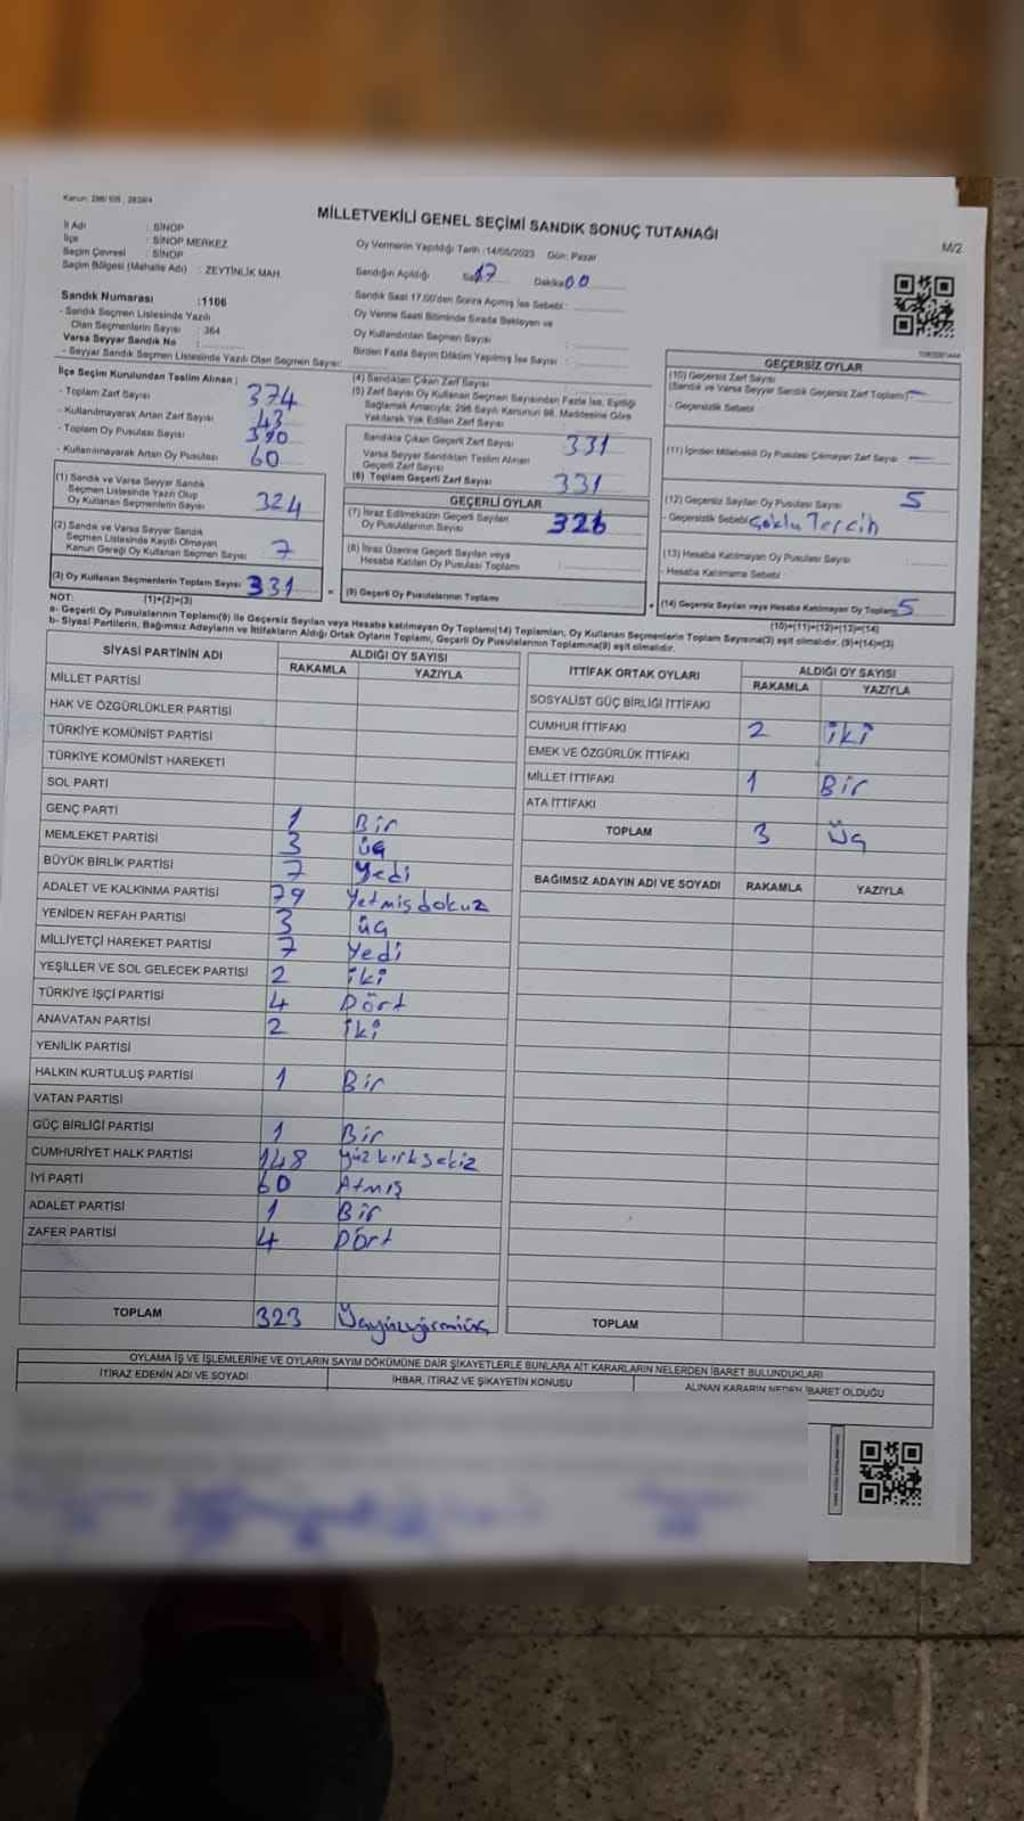 Karun: 298/105, 2839/4
MİLLETVEKİLİ GENEL SEÇİMİ SANDIK SONUÇ TUTANAĞI
M/2
İl Adı : SİNOP
İlçe : SİNOP MERKEZ
Seçim Çevresi : SİNOP
Seçim Bölgesi (Mahalle Adı) : ZEYTİNLİK MAH.
Oy Vermenin Yapıldığı Tarih :14/05/2023 Gün: Pazar
Sandığın Açıldığı Saat 17 Dakika 00
Sandık Saat 17.00'den Sonra Açılmış İse Sebebi :
Oy Verme Saati Bitiminde Sırada Bekleyen ve
Oy Kullandırılan Seçmen Sayısı :
Birden Fazla Sayım Döküm Yapılmış İse Sayısı :
Sandık Numarası :1106
- Sandık Seçmen Listesinde Yazılı
Olan Seçmenlerin Sayısı : 364
Varsa Seyyar Sandık No :
- Seyyar Sandık Seçmen Listesinde Yazılı Olan Seçmen Sayısı:
İlçe Seçim Kurulundan Teslim Alınan ;
- Toplam Zarf Sayısı 374
- Kullanılmayarak Artan Zarf Sayısı 43
- Toplam Oy Pusulası Sayısı 390
- Kullanılmayarak Artan Oy Pusulası 60
(1) Sandık ve Varsa Seyyar Sandık
Seçmen Listesinde Yazılı Olup
Oy Kullanan Seçmenlerin Sayısı 324
(2) Sandık ve Varsa Seyyar Sandık
Seçmen Listesinde Kayıtlı Olmayan
Kanun Gereği Oy Kullanan Seçmen Sayısı 7
(3) Oy Kullanan Seçmenlerin Toplam Sayısı 331
(1)+(2)=(3)
(4) Sandıktan Çıkan Zarf Sayısı :
(5) Zarf Sayısı Oy Kullanan Seçmen Sayısından Fazla İse, Eşitliği
Sağlamak Amacıyla; 298 Sayılı Kanunun 98. Maddesine Göre
Yakılarak Yok Edilen Zarf Sayısı
Sandıkta Çıkan Geçerli Zarf Sayısı 331
Varsa Seyyar Sandıktan Teslim Alınan
Geçerli Zarf Sayısı
(6) Toplam Geçerli Zarf Sayısı 331
GEÇERLİ OYLAR
(7) İtiraz Edilmeksizin Geçerli Sayılan
Oy Pusulalarının Sayısı 326
(8) İtiraz Üzerine Geçerli Sayılan veya
Hesaba Katılan Oy Pusulası Toplamı
(9) Geçerli Oy Pusulalarının Toplamı
GEÇERSİZ OYLAR
(10) Geçersiz Zarf Sayısı
(Sandık ve Varsa Seyyar Sandık Geçersiz Zarf Toplamı) —
- Geçersizlik Sebebi
(11) İçinden Milletvekili Oy Pusulası Çıkmayan Zarf Sayısı —
(12) Geçersiz Sayılan Oy Pusulası Sayısı 5
- Geçersizlik Sebebi Çoklu Tercih
(13) Hesaba Katılmayan Oy Pusulası Sayısı
- Hesaba Katılmama Sebebi
(14) Geçersiz Sayılan veya Hesaba Katılmayan Oy Toplamı 5
(10)+(11)+(12)+(13)=(14)
NOT:
a- Geçerli Oy Pusulalarının Toplamı(9) ile Geçersiz Sayılan veya Hesaba katılmayan Oy Toplamı(14) Toplamları, Oy Kullanan Seçmenlerin Toplam Sayısına(3) eşit olmalıdır. (9)+(14)=(3)
b- Siyasi Partilerin, Bağımsız Adayların ve İttifakların Aldığı Ortak Oyların Toplamı, Geçerli Oy Pusulalarının Toplamına(9) eşit olmalıdır.
SİYASİ PARTİNİN ADI ALDIĞI OY SAYISI
RAKAMLA YAZIYLA
MİLLET PARTİSİ
HAK VE ÖZGÜRLÜKLER PARTİSİ
TÜRKİYE KOMÜNİST PARTİSİ
TÜRKİYE KOMÜNİST HAREKETİ
SOL PARTİ
GENÇ PARTİ 1 Bir
MEMLEKET PARTİSİ 3 üç
BÜYÜK BİRLİK PARTİSİ 7 Yedi
ADALET VE KALKINMA PARTİSİ 79 Yetmişdokuz
YENİDEN REFAH PARTİSİ 3 üç
MİLLİYETÇİ HAREKET PARTİSİ 7 Yedi
YEŞİLLER VE SOL GELECEK PARTİSİ 2 iki
TÜRKİYE İŞÇİ PARTİSİ 4 Dört
ANAVATAN PARTİSİ 2 iki
YENİLİK PARTİSİ
HALKIN KURTULUŞ PARTİSİ 1 Bir
VATAN PARTİSİ
GÜÇ BİRLİĞİ PARTİSİ 1 Bir
CUMHURİYET HALK PARTİSİ 148 yüzkırksekiz
İYİ PARTİ 60 Atmış
ADALET PARTİSİ 1 Bir
ZAFER PARTİSİ 4 Dört
TOPLAM 323 Üçyüzyirmiüç
İTTİFAK ORTAK OYLARI ALDIĞI OY SAYISI
RAKAMLA YAZIYLA
SOSYALİST GÜÇ BİRLİĞİ İTTİFAKI
CUMHUR İTTİFAKI 2 iki
EMEK VE ÖZGÜRLÜK İTTİFAKI
MİLLET İTTİFAKI 1 Bir
ATA İTTİFAKI
TOPLAM 3 Üç
BAĞIMSIZ ADAYIN ADI VE SOYADI RAKAMLA YAZIYLA
TOPLAM
OYLAMA İŞ VE İŞLEMLERİNE VE OYLARIN SAYIM DÖKÜMÜNE DAİR ŞİKAYETLERLE BUNLARA AİT KARARLARIN NELERDEN İBARET BULUNDUKLARI
İTİRAZ EDENİN ADI VE SOYADI İHBAR, İTİRAZ VE ŞİKAYETİN KONUSU ALINAN KARARIN NEDEN İBARET OLDUĞU